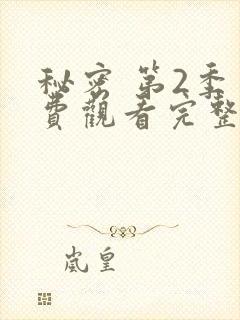 秘密 第2季
費觀看完整
嵐皇